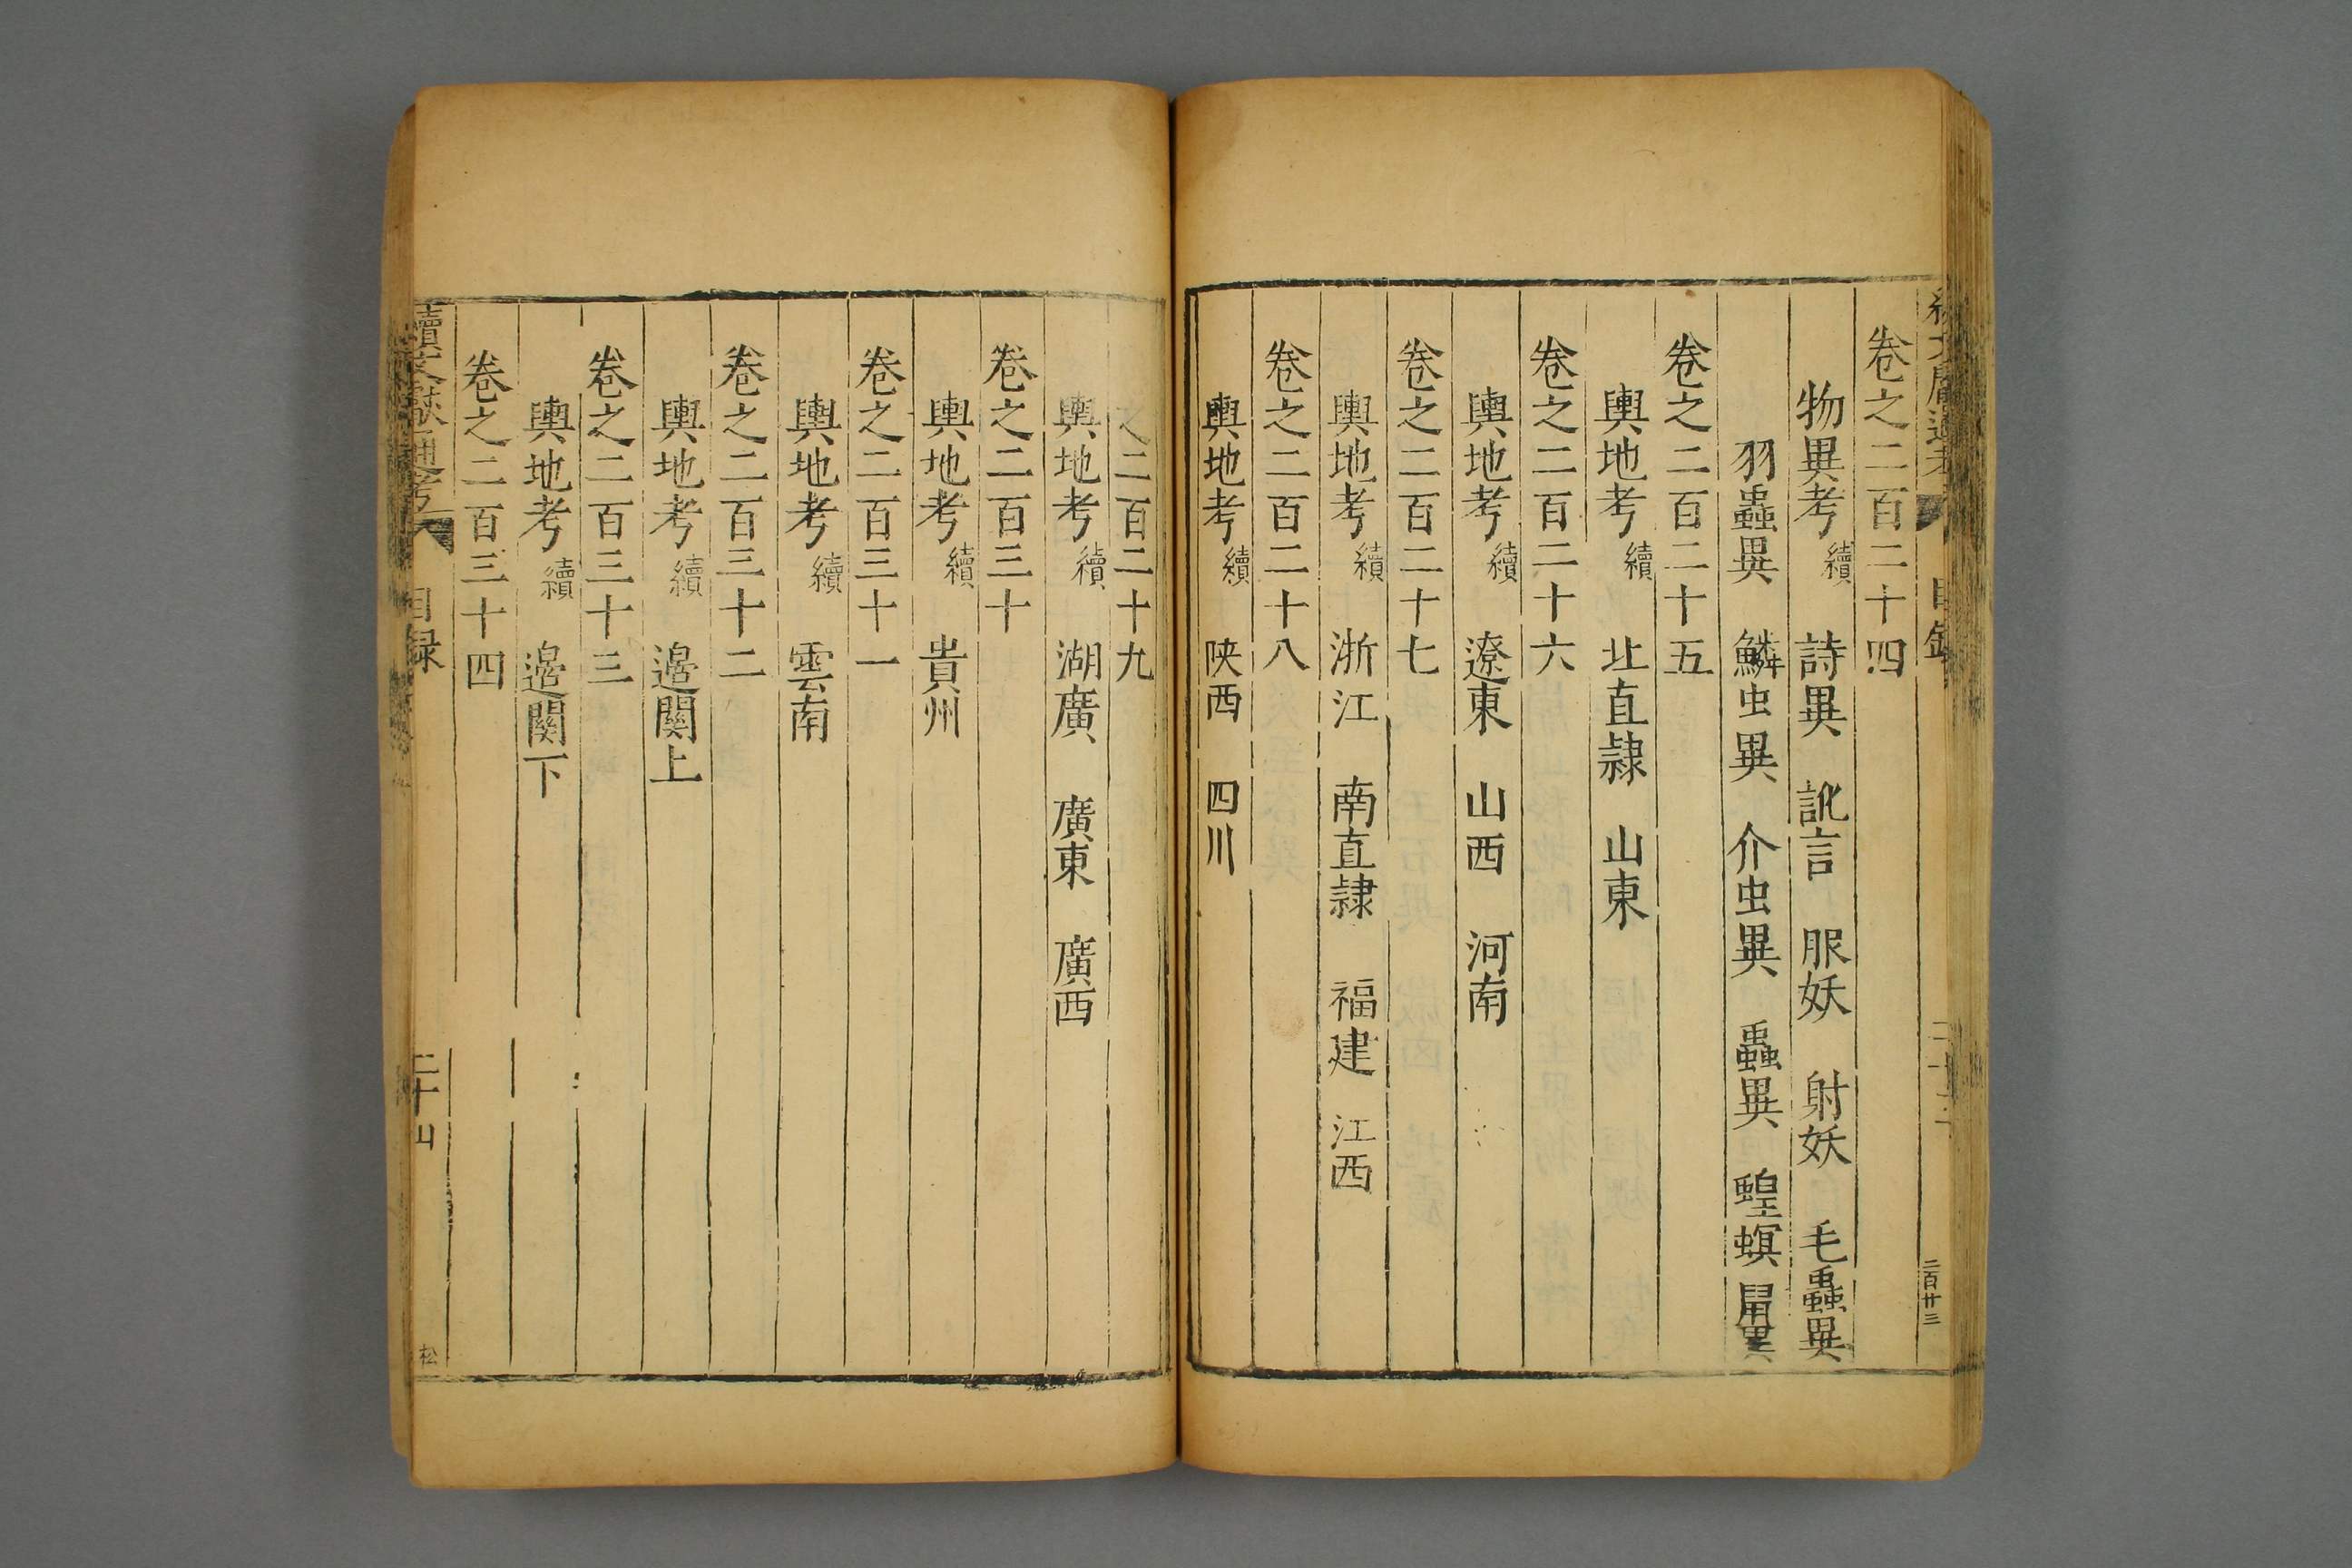 卷之二百二十四
物異考 續 詩異 訛言 服妖 射妖 毛蟲異
羽蟲異 鱗虫異 介虫異 蟲異 蝗螟 鼠異
卷之二百二十五
輿地考 續 北直隸 山東
卷之二百二十六
輿地考 續 遼東 山西 河南
卷之二百二十七
輿地考 續 浙江 南直隸 福建 江西
卷之二百二十八
輿地考 續 陝西 四川
二百廿三
之二百二十九
輿地考 續 湖廣 廣東 廣西
卷之二百三十
輿地考 續 貴州
卷之二百三十一
輿地考 續 雲南
卷之二百三十二
輿地考 續 邊關上
卷之二百三十三
輿地考 續 邊關下
卷之二百三十四
續文獻通考 目録 二十四 松